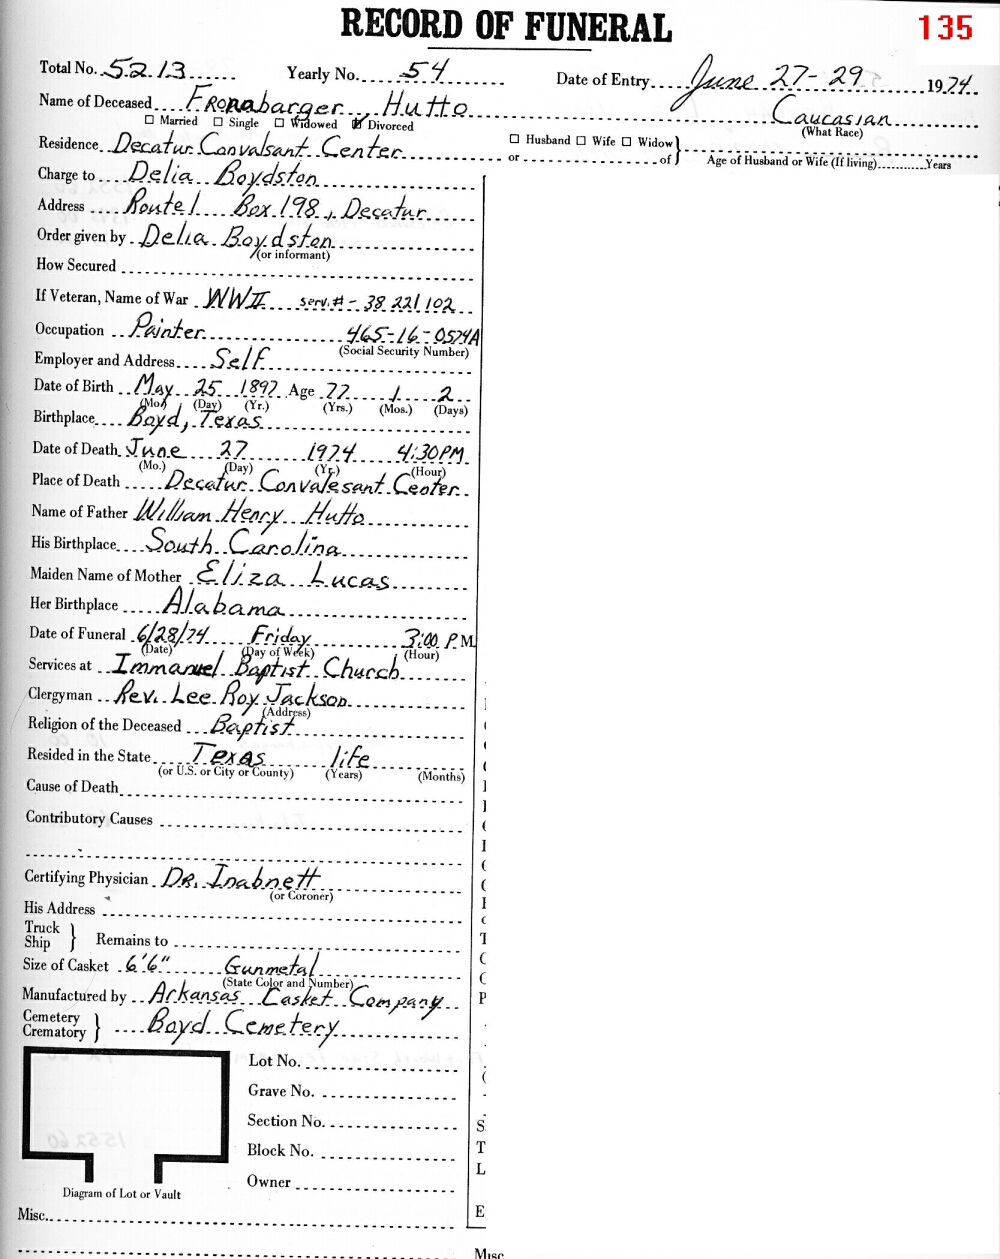 RECORD OF FUNERAL
135
Total No. 5213 Yearly No. 54 Date of Entry June 27-29 1974
Name of Deceased Fronabarger Hutto Caucasian
☐ Married ☐ Single ☐ Widowed ☑ Divorced (What Race)
Residence Decatur Convalsant Center ☐ Husband ☐ Wife ☐ Widow }
or of } Age of Husband or Wife (If living) Years
Charge to Delia Boydston
Address Route 1 Box 198, Decatur
Order given by Delia Boydston
(or informant)
How Secured
If Veteran, Name of War WWII serv.# - 38 221 102
Occupation Painter 465-16-0574A
(Social Security Number)
Employer and Address Self
Date of Birth May 25 1897 Age 77 1 2
(Mo.) (Day) (Yr.) (Yrs.) (Mos.) (Days)
Birthplace Boyd, Texas
Date of Death June 27 1974 4:30 PM
(Mo.) (Day) (Yr.) (Hour)
Place of Death Decatur Convalesant Center
Name of Father William Henry Hutto
His Birthplace South Carolina
Maiden Name of Mother Eliza Lucas
Her Birthplace Alabama
Date of Funeral 6/28/74 Friday 3:00 P M
(Date) (Day of Week) (Hour)
Services at Immanuel Baptist Church
Clergyman Rev. Lee Roy Jackson
(Address)
Religion of the Deceased Baptist
Resided in the State Texas life
(or U.S. or City or County) (Years) (Months)
Cause of Death
Contributory Causes
Certifying Physician DR. Inabnett
(or Coroner)
His Address
Truck
Ship } Remains to
Size of Casket 6'6" Gunmetal
(State Color and Number)
Manufactured by Arkansas Casket Company
Cemetery
Crematory } Boyd Cemetery
Lot No.
Grave No.
Section No.
Block No.
Owner
Diagram of Lot or Vault
Misc.
S
T
L
E
Misc